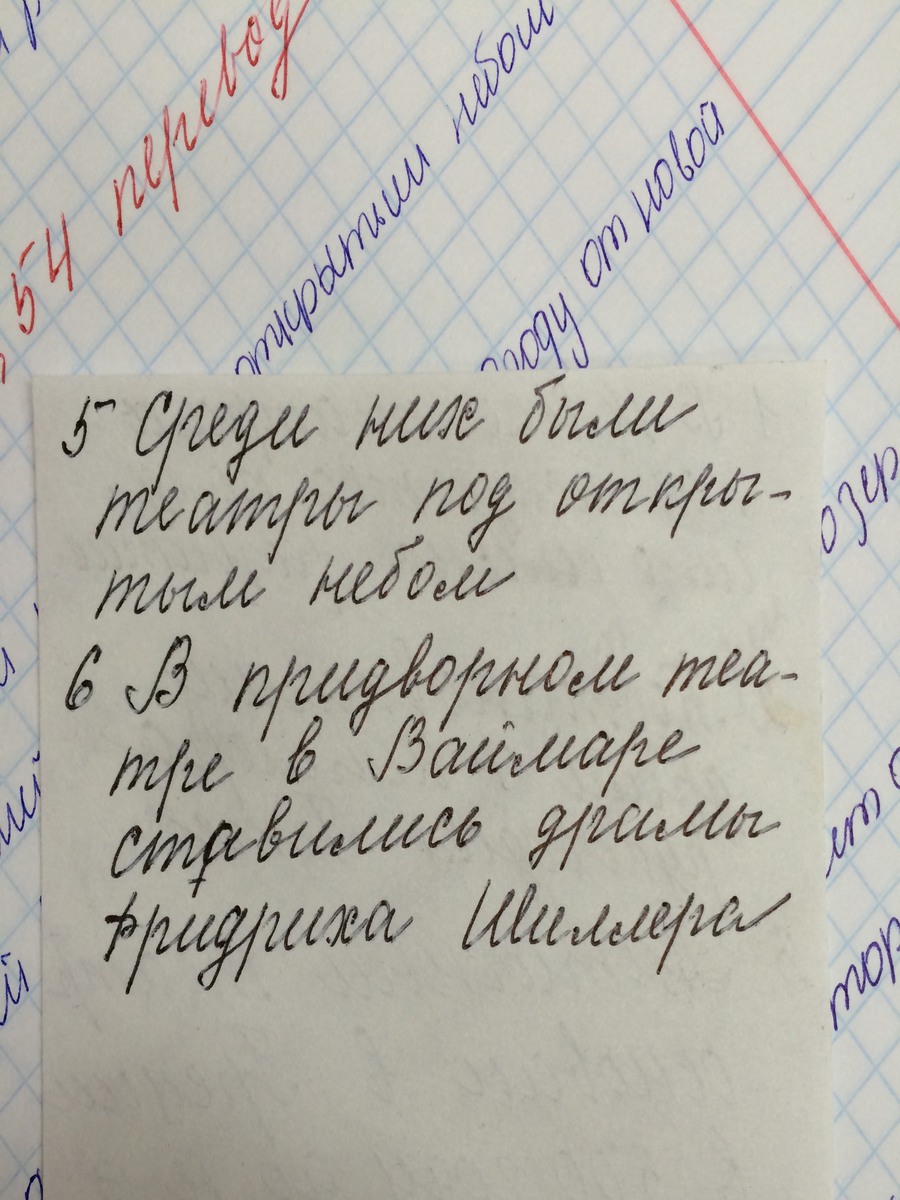 54 перевод
открытым небом
году от новой
5 Среди них были
театры под откры-
тым небом
6 В придворном теа-
тре в Ваймаре
ставились драмы
Фридриха Шиллера